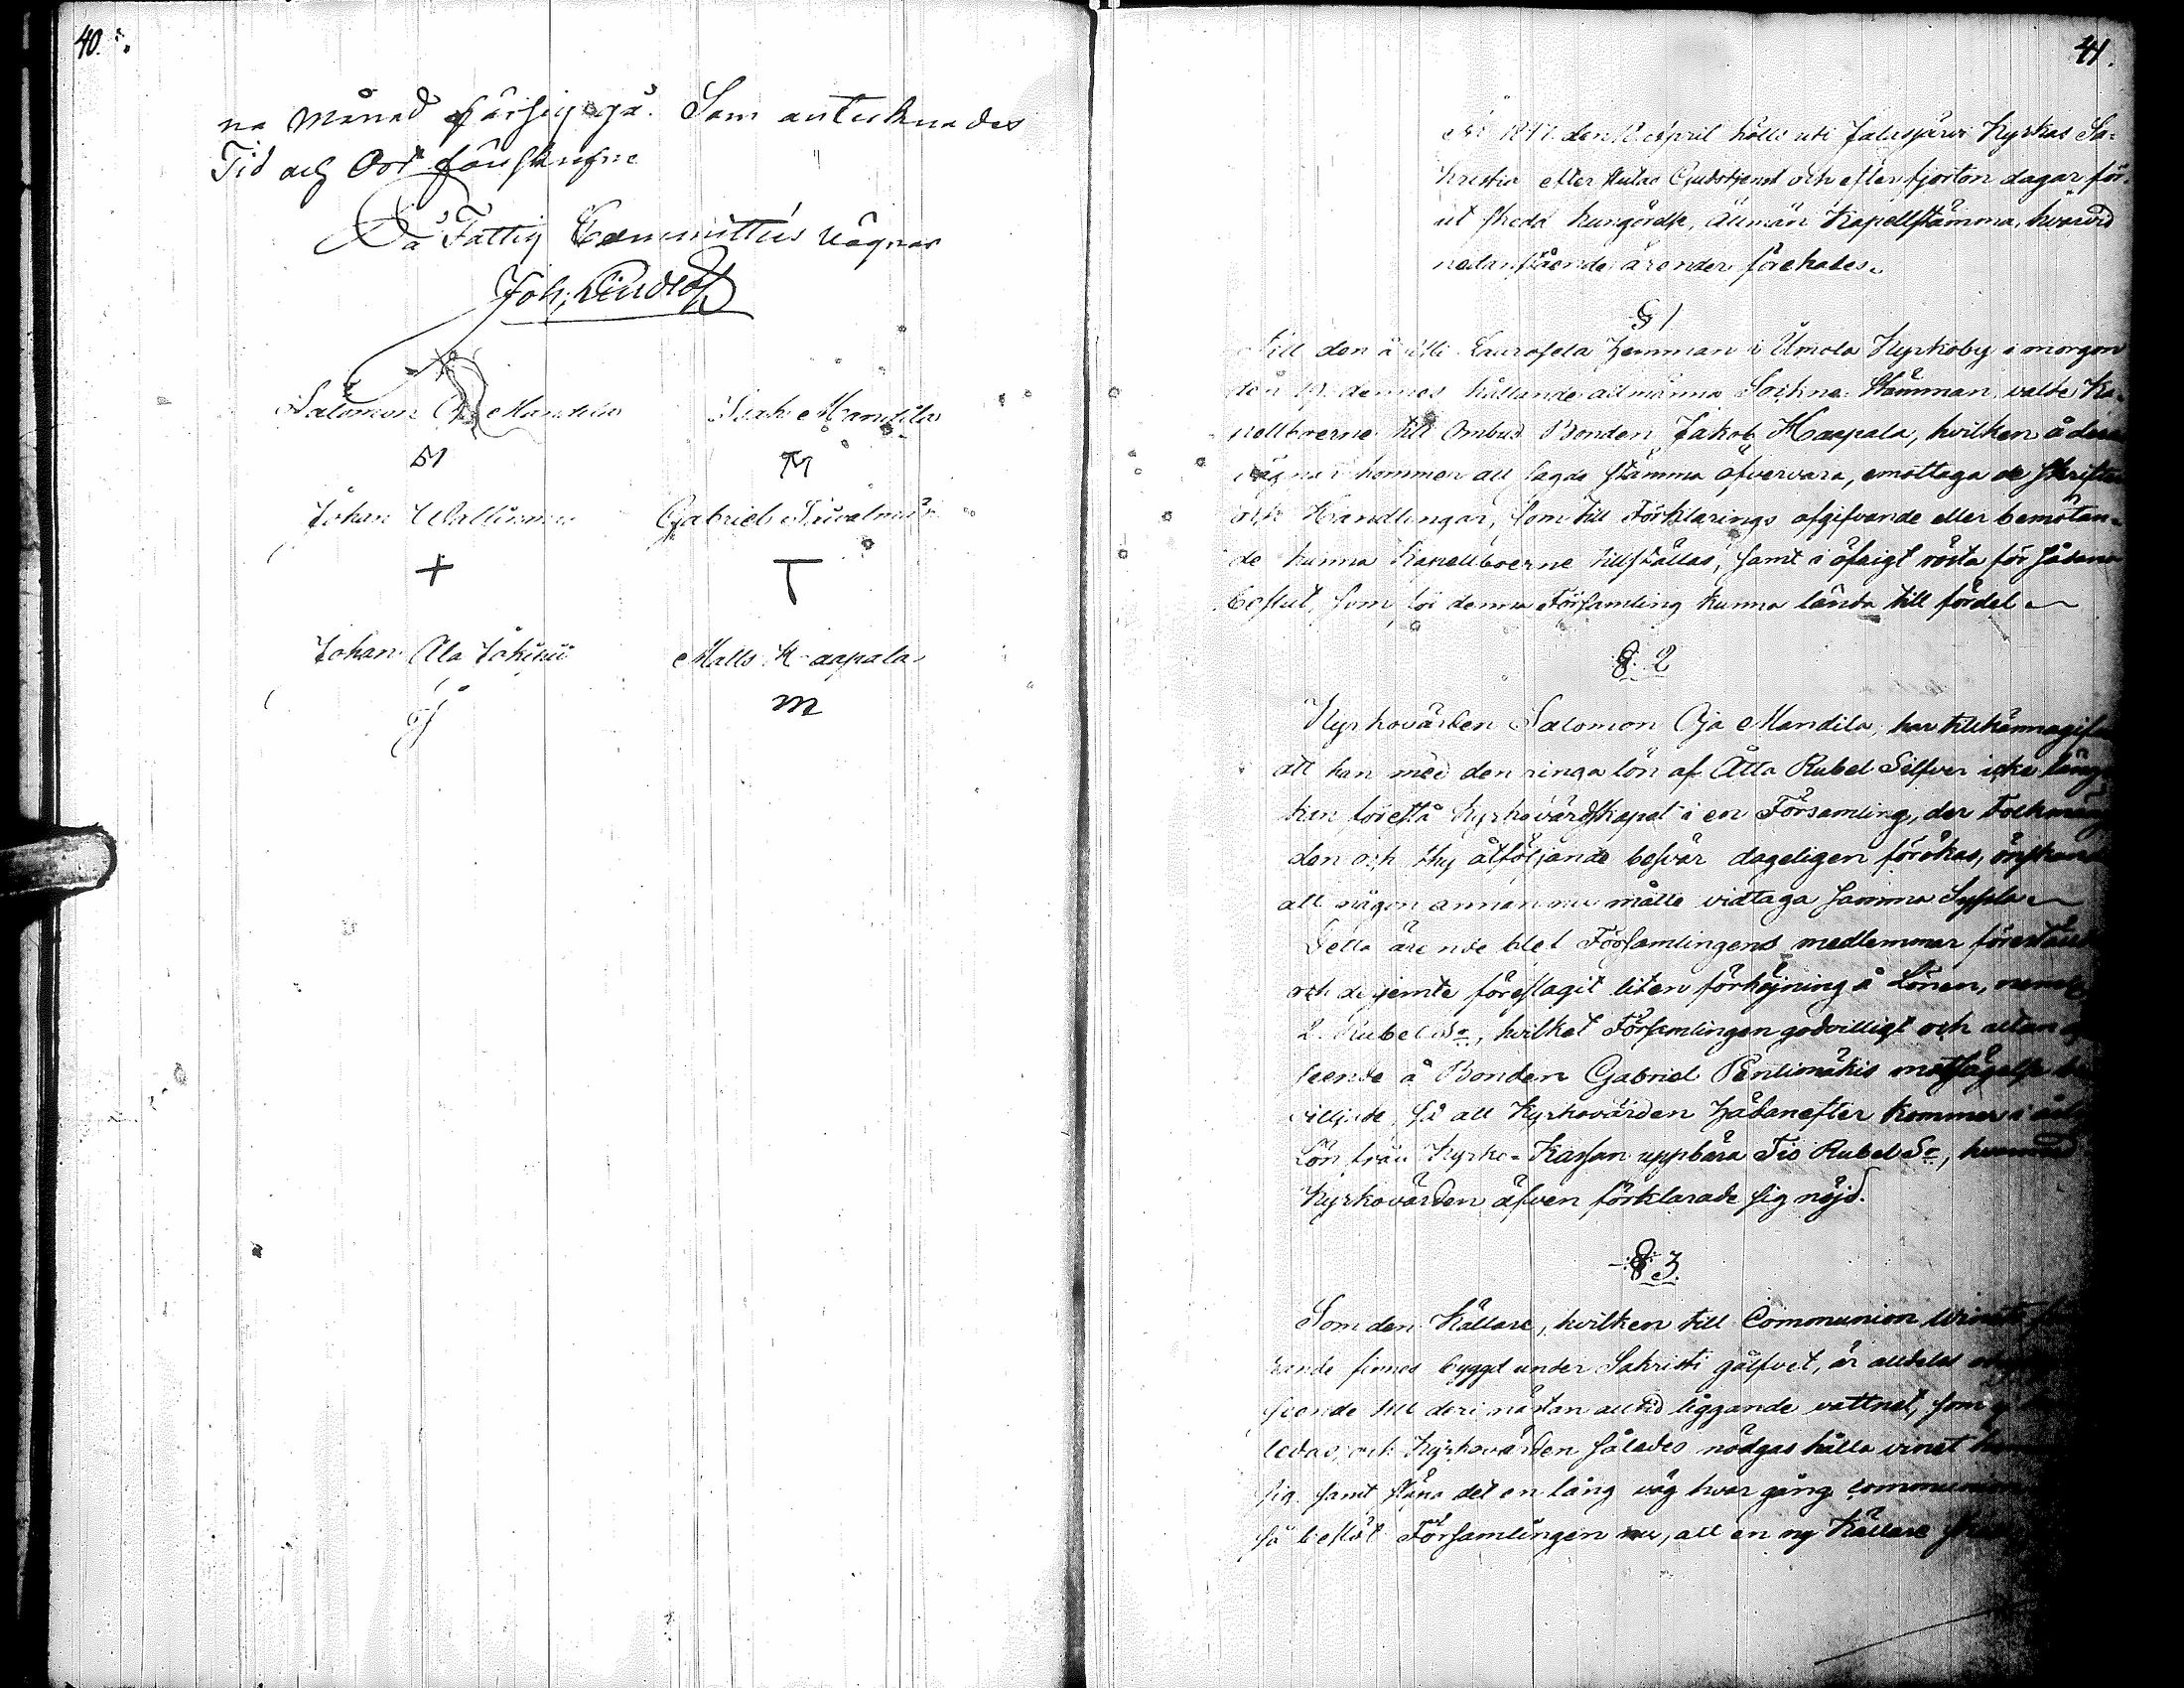 40.
na månad försiggå. Som antecknades
Tid och Ort förskrifne
På Fattig Committéns vägnar
Joh. Lindlöf
Salomon Oja Mandila
Isak Mandila
Johan
Gabriel
Johan Ala Jåkipii
Matts Haapala
m
41.
År 1847 den 11 April hölls uti Jalasjärvi Kyrkas Sa-
kristia efter slutad Gudstjenst och efter fjorton dagar för-
ut skedd kungörelse, Allmän Kapellstämma, hvarvid
nedanstående ärender förehades.
§ 1
Till den å Hemman i Ilmola Kyrkoby i morgon
den 12 dennes hållande allmänna Sockne Stämman, valde Ka-
pellboerne till Ombud Bonden Jakob Haapala, hvilken å deras
vägnar kommer att sagda stämma öfvervara, emottaga de skrifter
och Handlingar, som till Förklarings afgifvande eller bemötan-
de kunna Kapellboerne tillställas, samt i öfrigt rösta för sådana
beslut, som för denna Församling kunna lända till fördel
§. 2
Kyrkovärden Salomon Oja Mandila, har tillkännagif
att han med den ringa lön af Åtta Rubel Silfver icke läng
kan förestå Kyrkovärdskapet i en Församling, der Folkmäng
den och thy åtföljande besvär dageligen förökas, önskan
att någon annan nu måtte vidtaga samma Syssla
Detta ärende blef Församlingens medlemmar förestäl
och de jemte föreslagit liten förhöjning å Lönen, neml
2 Rubel Sr, hvilket Församlingen godvilligt och utan
seende å Bonden Gabriel Penlimäkis motsägelse be
villjade, så att Kyrkovärden hädanefter kommer i
Lön från Kyrko-Kassan uppbära Tio Rubel Sr,
Kyrkovärden äfven förklarade sig nöjd.
§ 3.
Som den Källare, hvilken till Communion Vinets
rande finnes byggd under Sakristi gålfvet, är alldeles
seende till deri nästan alltid liggande vattnet, som ej
ledas, och Kyrkovärden således nödgas hålla vinet
sig, samt släpa det en lång väg hvar gång communion
så beslöt Församlingen nu, att en ny Källare